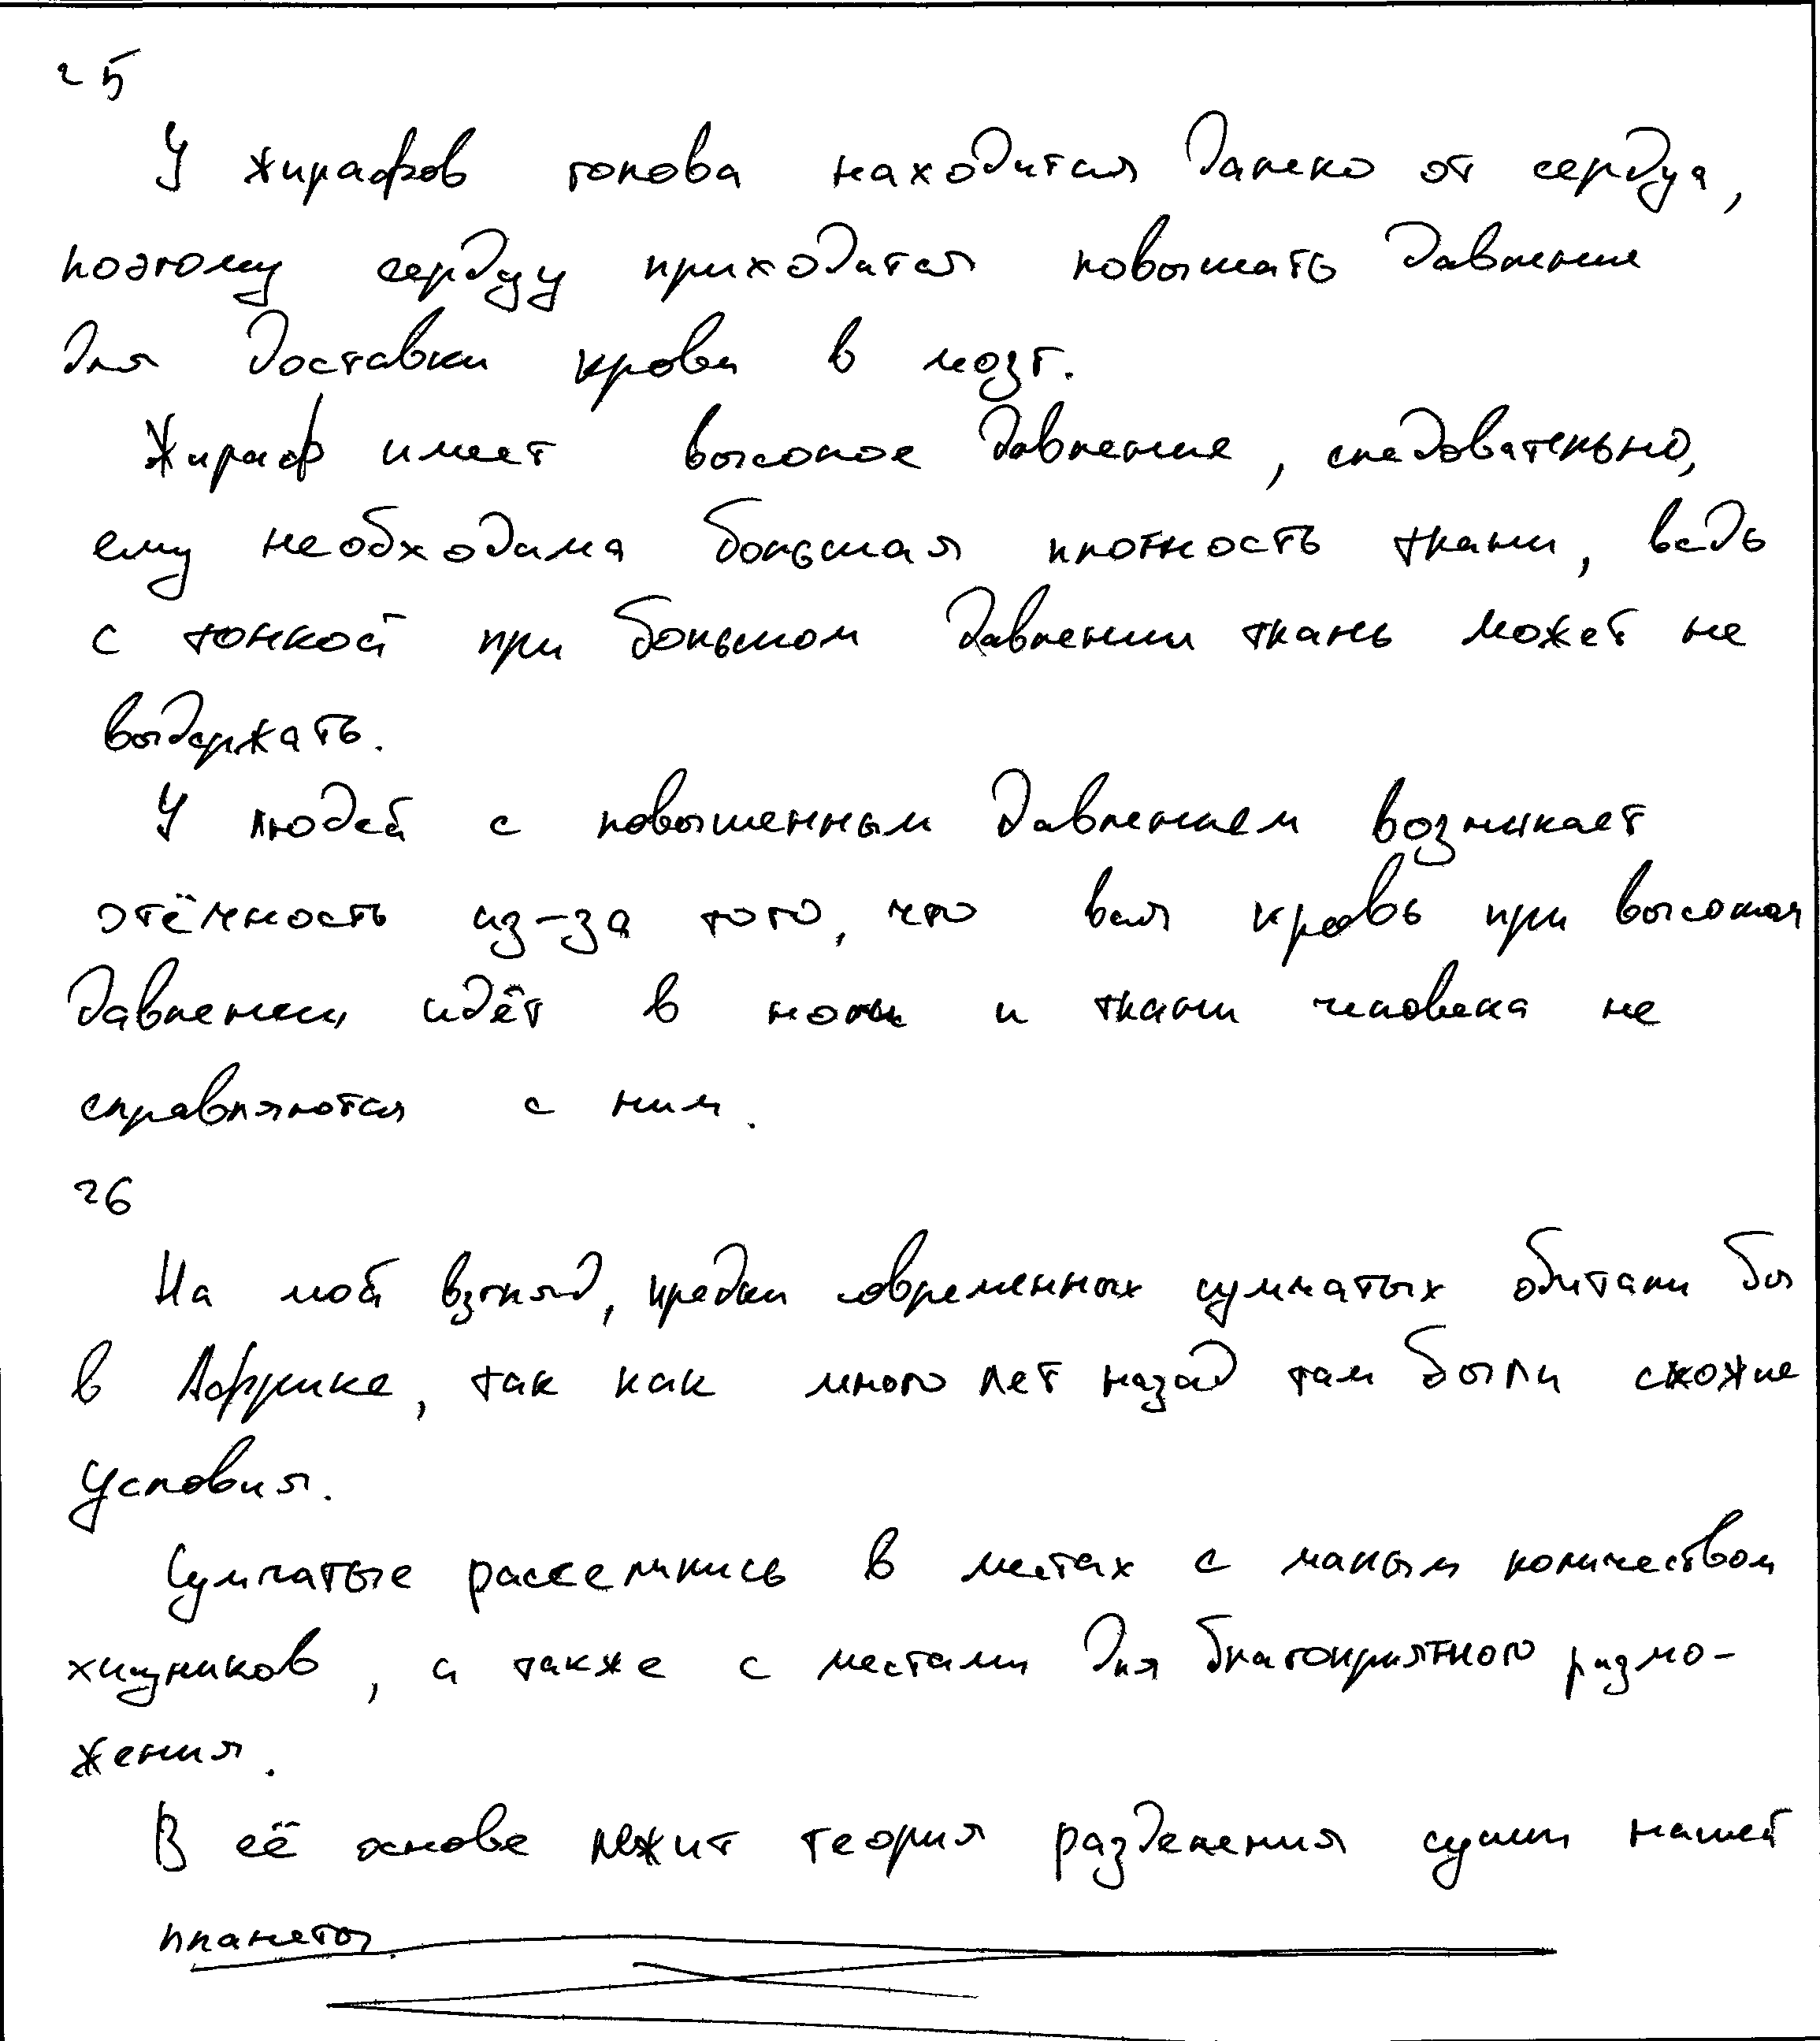 25
У жирафов голова находится далеко от сердца,
поэтому сердцу приходится повышать давление
для доставки крови в мозг.
Жираф имеет высокое давление, следовательно,
ему необходима большая плотность ткани, ведь
с тонкой при большом давлении ткань может не
выдержать.
У людей с повышенным давлением возникает
отёчность из-за того, что вся кровь при высоком
давлении идёт в ноги и ткани человека не
справляются с ним.
26
На мой взгляд, предки современных сумчатых обитали бы
в Африке, так как много лет назад там были схожие
условия.
Сумчатые расселились в местах с малым количеством
хищников, а также с местами для благоприятного размо-
жения.
В её основе лежит теория разделения суши нашей
планеты.